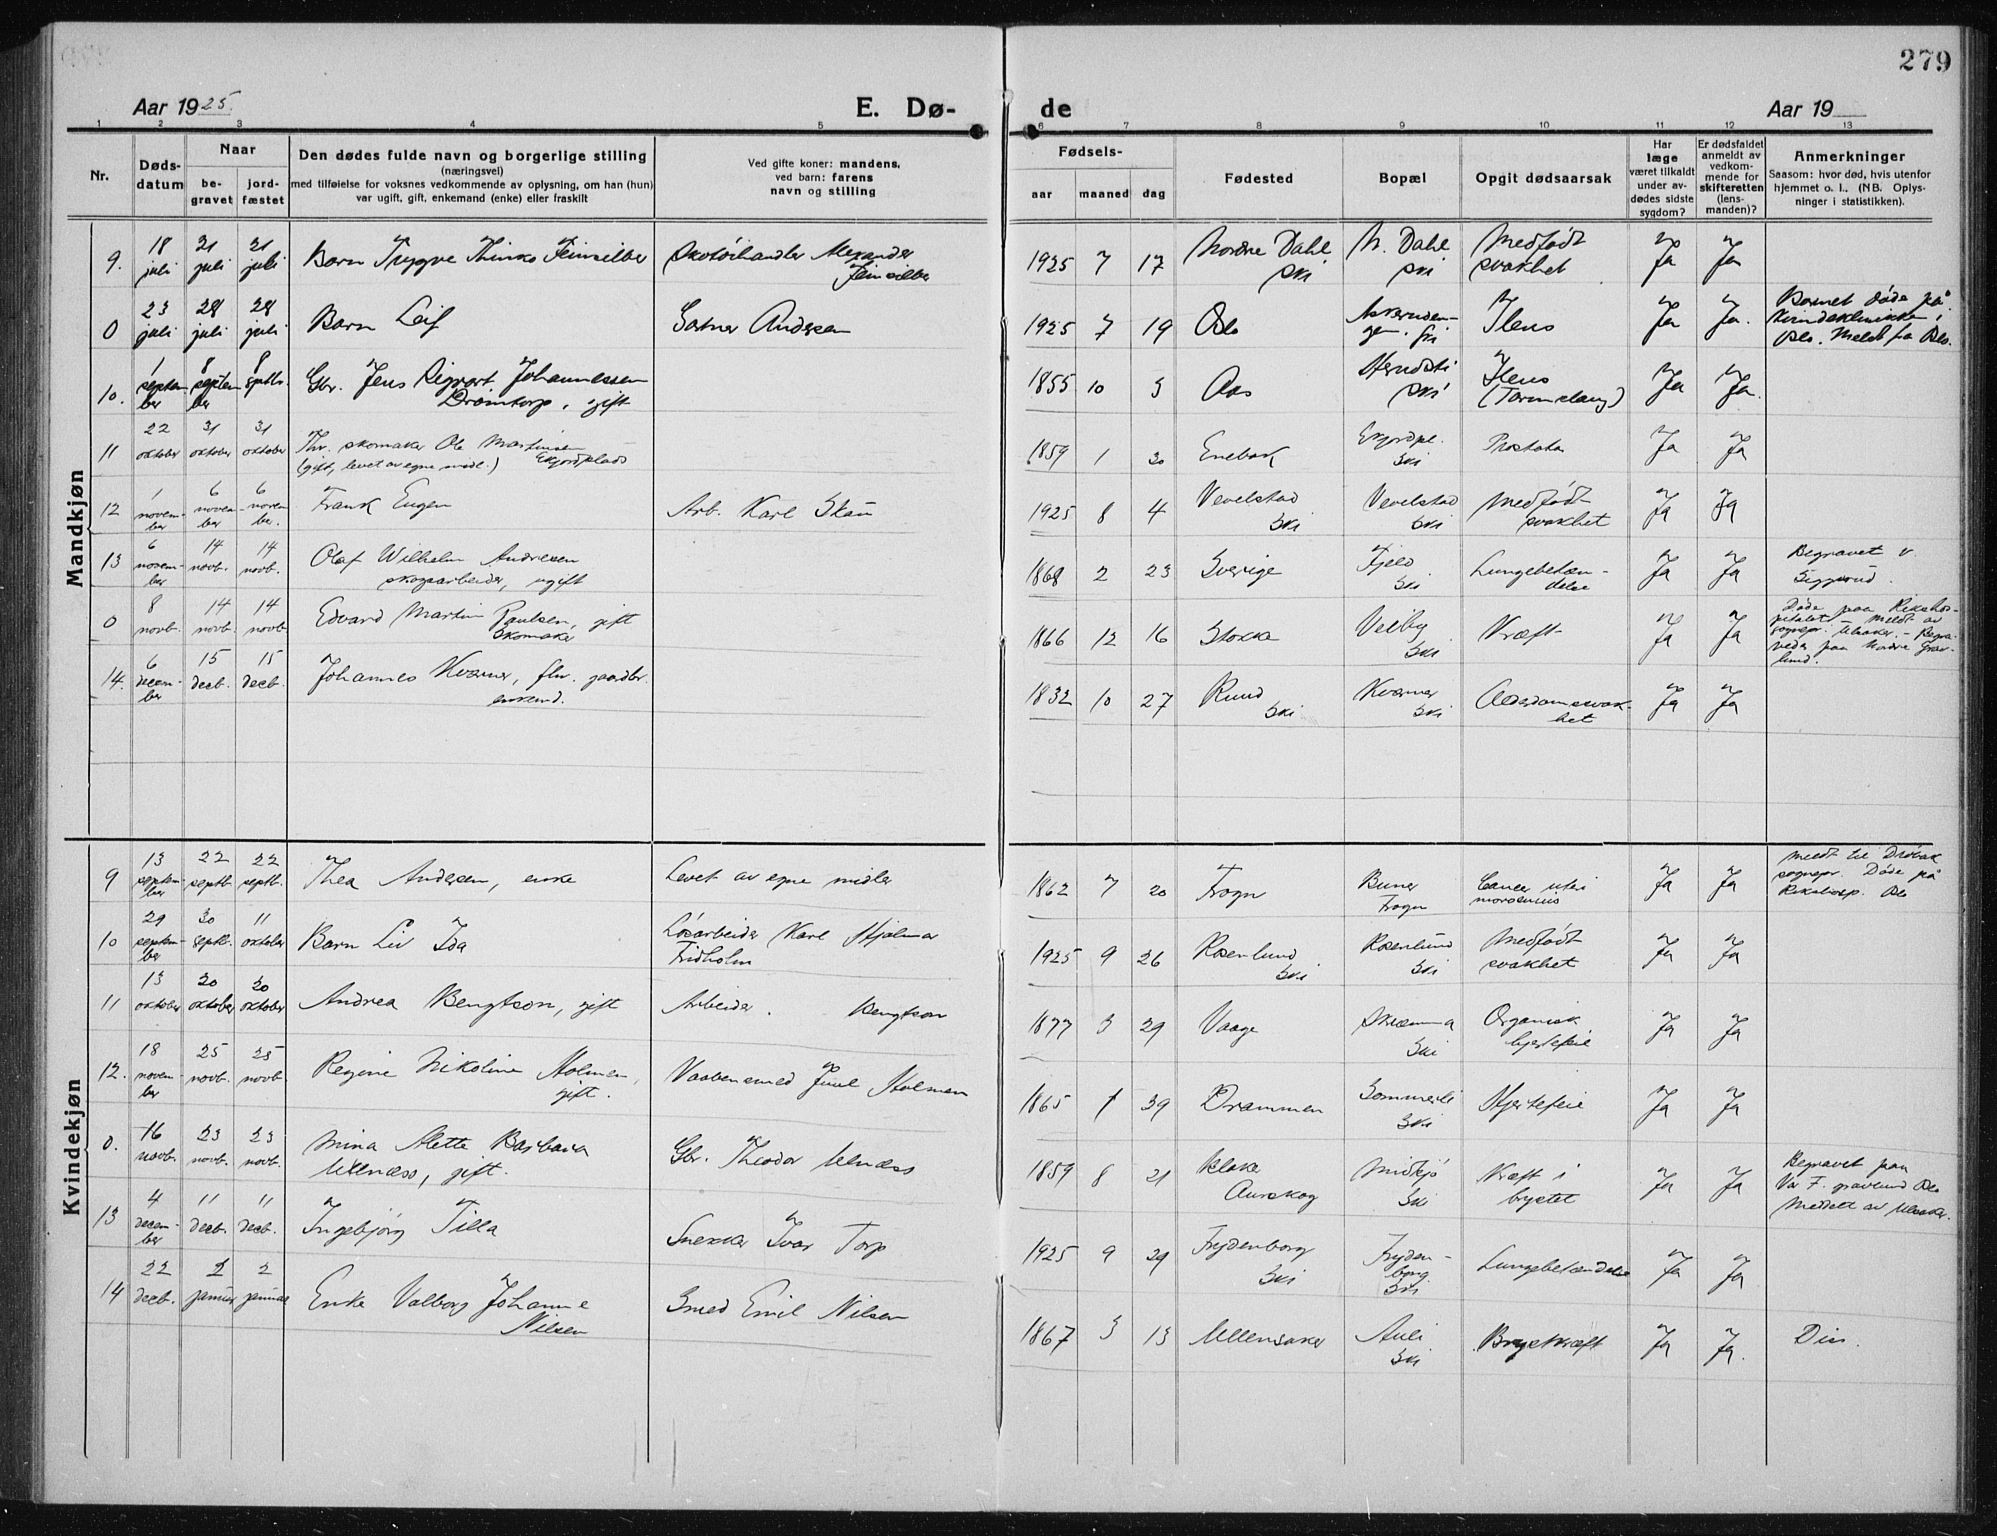 279
Aar 1925. E. Dø- de Aar 19
1 2 3 4 5 6 7 8 9 10 11 12 13
Nr. Døds-datum Naar be-gravet jord-fæstet Den dødes fulde navn og borgerlige stilling (næringsvei) med tilføielse for voksnes vedkommende av oplysning, om han (hun) var ugift, gift, enkemand (enke) eller fraskilt Ved gifte koner: mandens, ved barn: farens navn og stilling Fødsels- aar maaned dag Fødested Bopæl Opgit dødsaarsak Har læge været tilkaldt under av-dødes sidste sygdom? Er dødsfaldet anmeldt av vedkom-mende for skifteretten (lens-manden)? Anmerkninger Saasom: hvor død, hvis utenfor hjemmet o. l., (NB. Oplys-ninger i statistikken).
Mandkjøn
9. 18 juli 21 juli 21 juli Barn Trygve Feinsilber Skotøihandler Alexander Feinsilber 1925 7 17 Nordre Dahl Ski N. Dahl Ski Medfødt svakhet Ja Ja
0 23 juli 28 juli 28 juli Barn Leif Gatner Andersen 1925 7 19 Oslo Ski Ilens Ja Ja. Barnet døde på Kvindeklinikken i Oslo. Meldt fra Oslo.
10. 1 septem-ber 8 septem-ber 8 septb. Gbr. Jens Sigvart Johannessen Drømtorp, gift 1855 10 3 Aas Ski Ilens (Tarmslang) Ja Ja.
11 22 oktober 31 oktober 31 oktober Fhv. skomaker Ole Martinsen Ekjordplads (gift, levet av egne midl.) 1859 1 30 Enebak Ekjordpl. Ski Prostata Ja Ja
12 1 novem-ber 6 novem-ber 6 novem-ber. Frank Eugen Arb. Karl Skau 1925 8 4 Vevelstad Ski Vevelstad Ski Medfødt svakhet Ja Ja
13 6 novem-ber 14 novb. 14 novb. Olaf Wilhelm Andresen skogsarbeider, ugift 1868 2 23 Sverige Fjeld Ski Lungebetæn-delse Ja Ja Begravet v. Siggerud.
0 8 novb. 14 novb. 14 novb. Edvard Martin Paulsen, gift Skomaker 1866 12 16 Stokka Veiby Ski Kræft Ja Ja Døde paa Rikshos-pitalet. Meldt av sognepr. Ullsaker. - Begra-vedes paa Nordre Grav-lund.
14. 6 decem-ber 15 decb. 15 decb. Johannes Kværner, fhv. gaardbr. enkemd. 1832 10 27 Ruud Ski Kværner Ski Alderdomssvak-het Ja Ja
Kvindekjøn
9 13 septem-ber 22 septb. 22 septb. Thea Andersen, enke Levet av egne midler 1862 7 20 Frogn Buner Frogn Cancer uteri Ja Ja Meldt til Drøbak sognepr. Døde på Rikshosp. Oslo
10 29 septem-ber 30 septb. 11 oktober Barn Liv Ida Løsarbeider Karl Hjalmar Fridholm 1925 9 26 Rosenlund Ski Rosenlund Ski Medfødt svakhet Ja Ja
11 13 oktober 20 oktober 20 oktober Andrea Bengtson, gift Arbeider. Bengtson 1877 3 29 Vaage Skræmma Ski Organisk hjertefeil Ja Ja
12. 18 novem-ber 25 novb. 25 novb. Regine Nikoline Holmen, gift. Vaabensmed Juul Holmen 1865 1 39 Drammen Sommerli Ski Hjertefeil Ja Ja
0. 16 novb. 23 novb. 23 novb. Mina Alette Barbara Ulnæss, gift. Gbr. Theodor Ulnæss 1859 8 21 Aurskog Midsjø Ski Kræft i brystet Ja Ja Begravet paa Vår F. gravlund Oslo Meddelt av Ulsaker.
13 4 decem-ber 11 decb. 11 decb. Ingebjörg Tilla Snekker Ivar Torp 1925 9 29 Frydenborg Ski Fryden-borg Ski Lungebetændelse Ja Ja
14 22 decb. 2 januar 2 januar Enke Valborg Johanne Nilsen Smed Emil Nilsen 1867 3 13 Ullensaker Auli Ski Brystkræft Ja Ja. Diss.